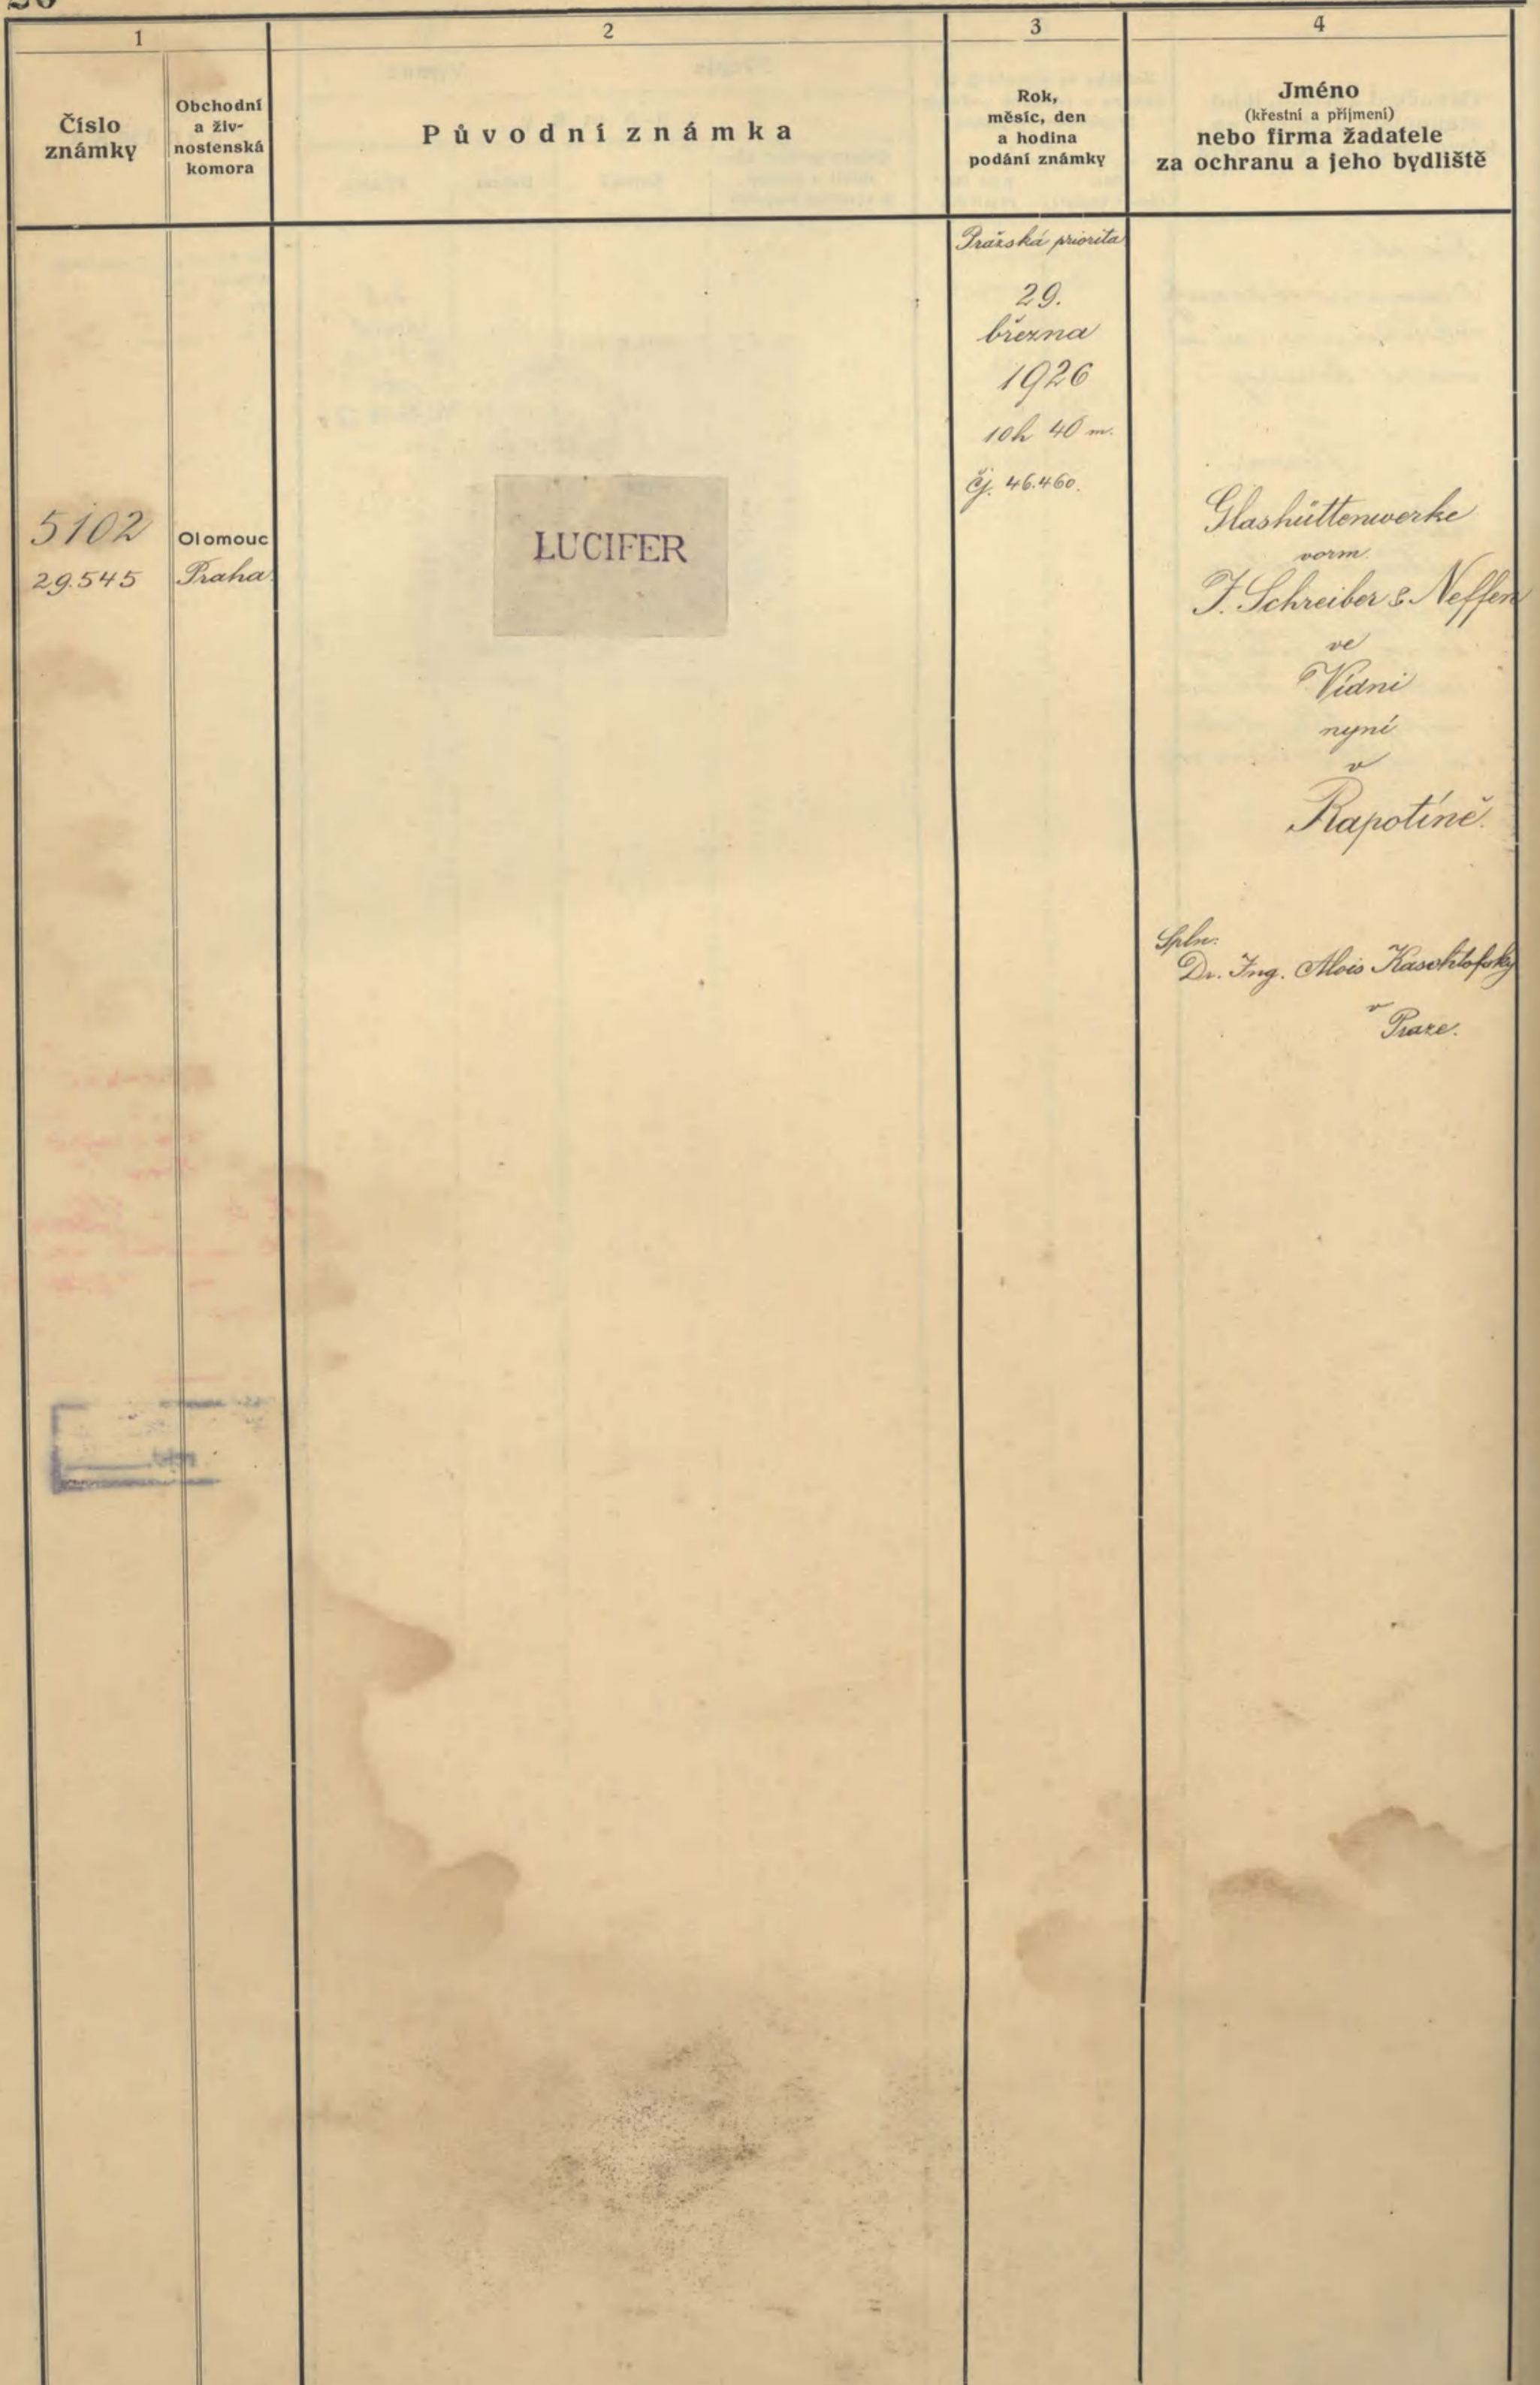 1
2
3
4
Číslo
známky
Obchodní
a živ-
nostenská
komora
Původní známka
Rok,
měsíc, den
a hodina
podání známky
Jméno
(křestní a příjmení)
nebo firma žadatele
za ochranu a jeho bydliště
5102
29.545
Olomouc
Praha
LUCIFER
Pražská priorita
29.
března
1926
10h 40 m.
čj. 46.460.
Glashüttenwerke
vorm.
J. Schreiber & Neffen
ve
Vídni
nyní
v
Rapotíně.
Spln:
Dr. Ing. Alois Kaschtofsky
v
Praze.